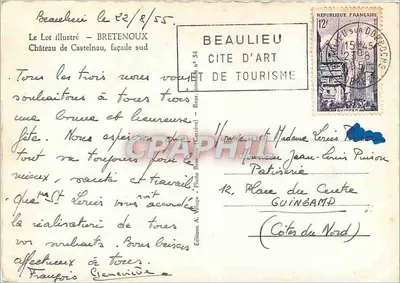 Beaulieu le 22/8/55
Le Lot illustré — BRETENOUX
Château de Castelnau, façade sud
BEAULIEU
CITE D'ART
ET DE TOURISME
RÉPUBLIQUE FRANÇAISE
12F
Tous les trois nous vous
souhaitons à tous trois
une bonne et heureuse
fête. Nous espérons que
tout va toujours pour le
mieux, santé et travail.
Que St Louis vous accorde
la réalisation de tous
vos souhaits. Bons baisers
affectueux à tous.
François Geneviève
Monsieur et Madame Louis
Jean-Louis
Patisserie
12, Place du Centre
GUINGAMP
(Côtes du Nord)
CPARAMA